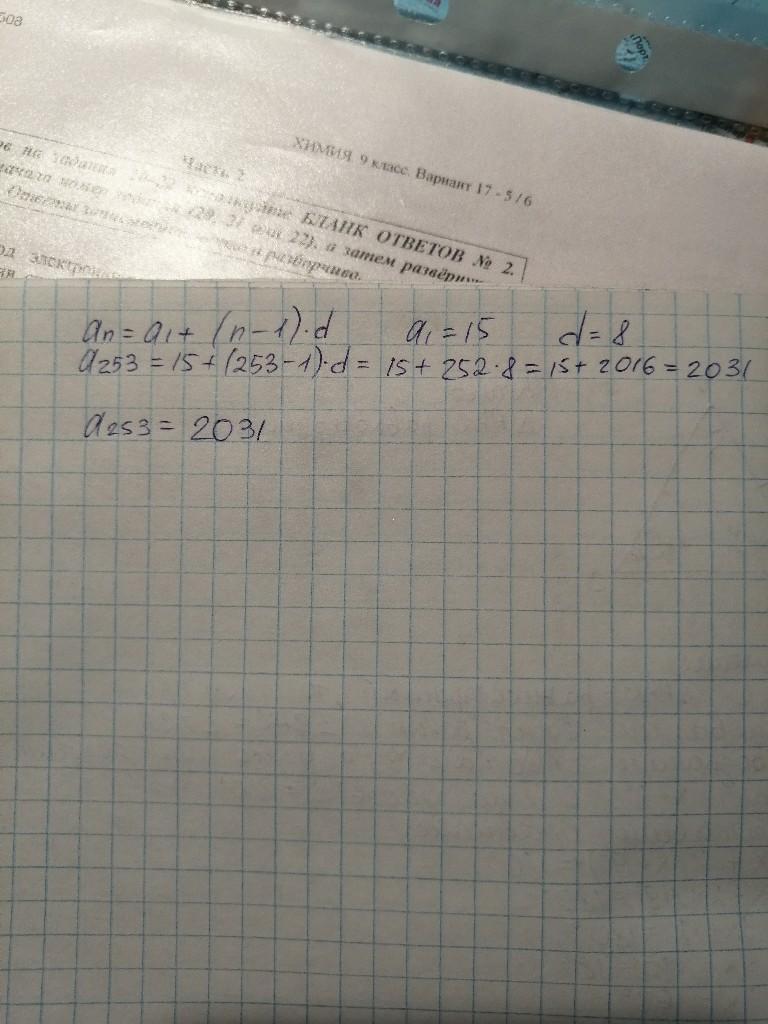 508
ХИМИЯ. 9 класс. Вариант 17 - 5 / 6
Часть 2
на задания 20-22 используйте БЛАНК ОТВЕТОВ № 2.
номер задания (20, 21 или 22), а затем развёрну
Ответы записывайте чётко и разборчиво.
электрон
an = a1 + (n-1)·d a1 = 15 d = 8
a253 = 15 + (253-1)·d = 15 + 252·8 = 15 + 2016 = 2031
a253 = 2031